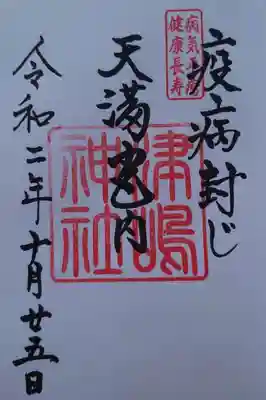 病気平癒
健康長寿
疫病封じ
天満宮内
津嶋
神社
令和二年十月廿五日